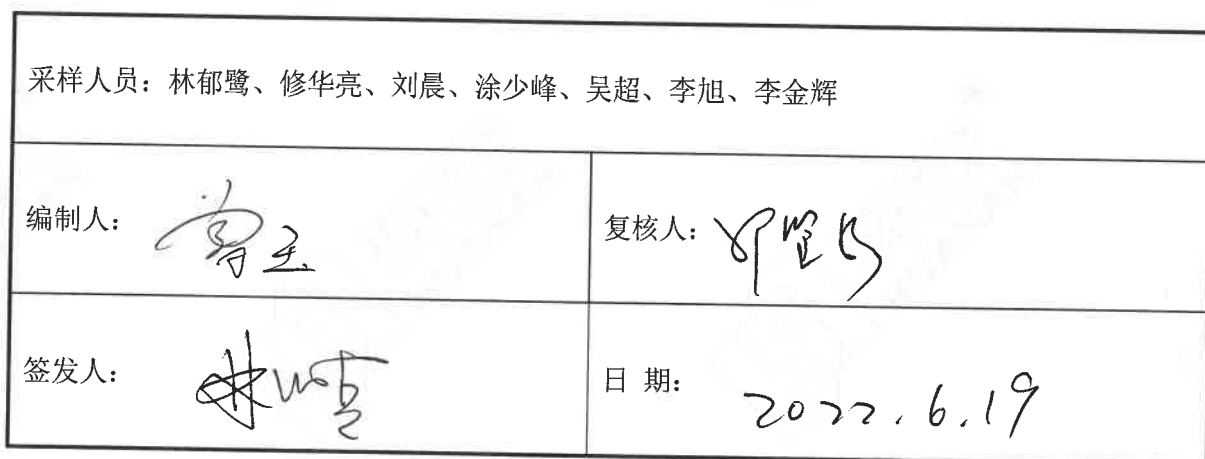 采样人员：林郁鹭、修华亮、刘晨、涂少峰、吴超、李旭、李金辉
编制人：
复核人：
签发人：
日 期：2022.6.19